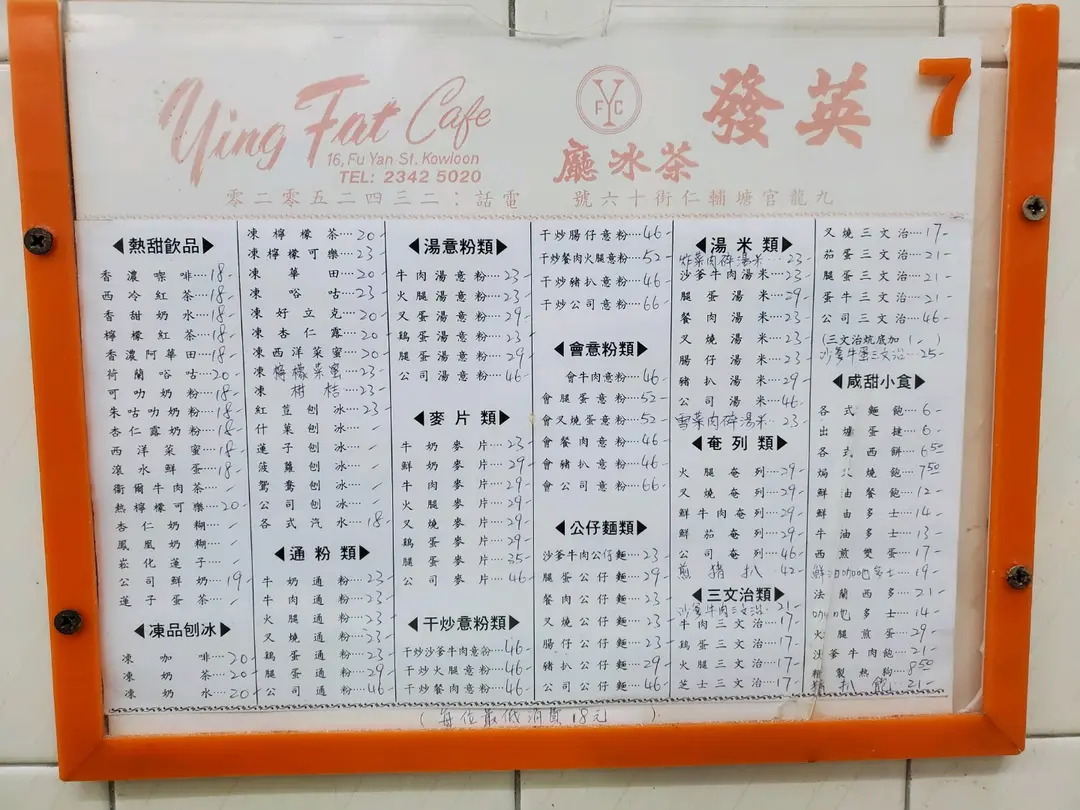 Ying Fat Cafe
16, Fu Yan St. Kowloon
TEL: 2342 5020
YFC
發英
廳冰茶
7
零二零五二四三二：話電
號六十街仁輔塘官龍九
◀熱甜飲品▶
香濃咖啡…18-
西冷紅茶…18-
香甜奶水…18-
檸檬紅茶…18-
香濃阿華田…18-
荷蘭唂咕…20-
可叻奶粉…18-
朱咕叻奶粉…18-
杏仁露奶粉…18-
西洋菜蜜…18-
滾水鮮蛋…18-
衞爾牛肉茶…
熱檸檬可樂…20-
杏仁奶糊…
鳳凰奶糊…
崧化蓮子…
公司鮮奶…19-
蓮子蛋茶…
◀凍品刨冰▶
凍咖啡…20-
凍奶茶…20-
凍奶水…20-
凍檸檬茶…20-
凍檸檬可樂…23-
凍華田…20-
凍唂咕…23-
凍好立克…20-
凍杏仁露…20
凍西洋菜蜜…20-
凍檸檬菜蜜…23-
凍柑桔…23-
紅荳刨冰…23-
什菓刨冰…
蓮子刨冰…
菠蘿刨冰…
鴛鴦刨冰…
公司刨冰…
各式汽水…18-
◀通粉類▶
牛奶通粉…23-
牛肉通粉…23-
火腿通粉…23-
叉燒通粉…23-
鷄蛋通粉…23-
腿蛋通粉…29-
公司通粉…46-
◀湯意粉類▶
牛肉湯意粉…23-
火腿湯意粉…23-
叉蛋湯意粉…29-
鷄蛋湯意粉…23-
腿蛋湯意粉…29-
公司湯意粉…46-
◀麥片類▶
牛奶麥片…23-
鮮奶麥片…29-
牛肉麥片…29-
火腿麥片…29-
叉燒麥片…29-
鷄蛋麥片…29-
腿蛋麥片…35-
公司麥片…46-
◀干炒意粉類▶
干炒沙爹牛肉意粉…46-
干炒火腿意粉…46-
干炒餐肉意粉…46-
干炒腸仔意粉…46-
干炒餐肉火腿意粉…52-
干炒豬扒意粉…46-
干炒公司意粉…66-
◀會意粉類▶
會牛肉意粉…46-
會腿蛋意粉…52-
會叉燒蛋意粉…52-
會餐肉意粉…46-
會豬扒意粉…46-
會公司意粉…66-
◀公仔麵類▶
沙爹牛肉公仔麵…23-
腿蛋公仔麵…29-
餐肉公仔麵…23-
叉燒公仔麵…23-
腸仔公仔麵…23-
豬扒公仔麵…29-
公司公仔麵…46-
◀湯米類▶
炸菜肉碎湯米…23-
沙爹牛肉湯米…23-
腿蛋湯米…29-
餐肉湯米…23-
叉燒湯米…23-
腸仔湯米…23-
豬扒湯米…29-
公司湯米…46-
雪菜肉碎湯米…23-
◀奄列類▶
火腿奄列…29-
叉燒奄列…29-
鮮牛肉奄列…29-
鮮茄奄列…29-
公司奄列…46-
煎豬扒…42-
◀三文治類▶
沙爹牛肉三文治…21-
牛肉三文治…17-
鷄蛋三文治…17-
火腿三文治…17-
芝士三文治…17-
叉燒三文治…17-
茄蛋三文治…21-
腿蛋三文治…21-
蛋牛三文治…21-
公司三文治…46-
(三文治炕底加1-)
沙爹牛蛋三文治…25-
◀咸甜小食▶
各式麵飽…6-
出爐蛋撻…6-
各式西餅…6.50
焗叉燒飽…7.50
鮮油餐飽…12-
鮮油多士…14-
牛油多士…13-
西煎雙蛋…17-
多士…19-
法蘭西多…21-
咖吔多士…14-
火腿煎蛋…29-
沙爹牛肉飽…21-
製熱狗…8.50
豬扒飽…21-
(每位最低消費18元)